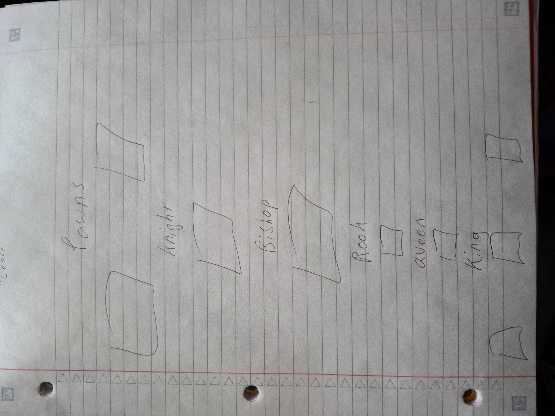 Pawns
Knight
Bishop
Rook
Queen
King